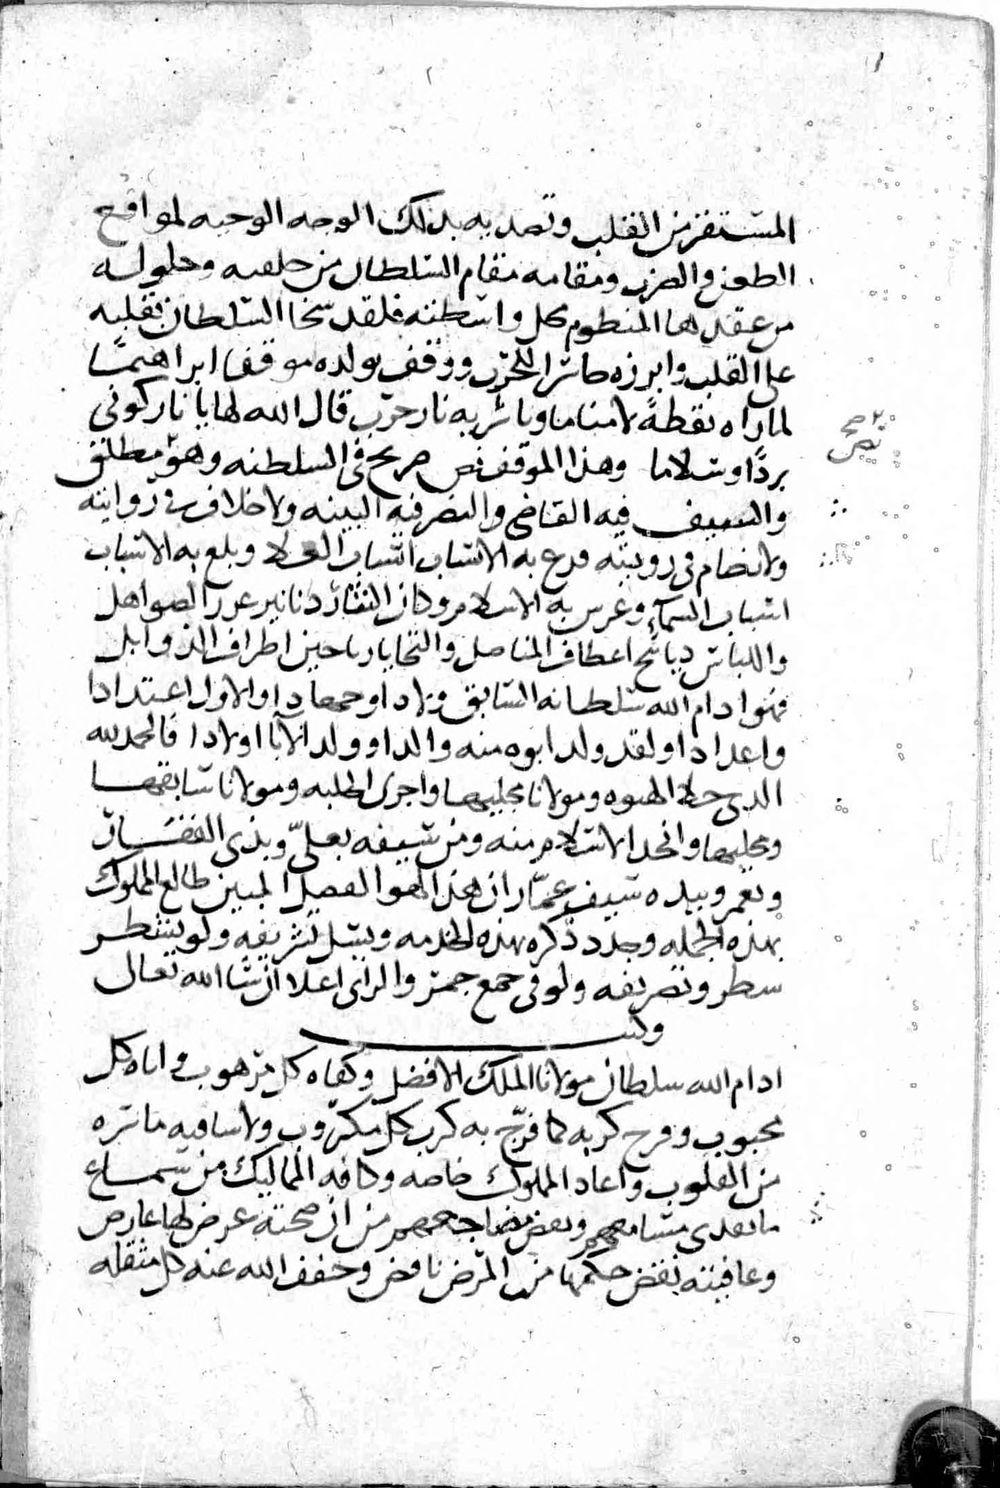 المستقر من القلب وتصديه بذلك الوجه الوجيه لمواقع
الطعن والضرب ومقامه مقام السلطان من حلقه وحلوله
من عقدها المنظوم محل واسطته فلقد سخا السلطان بقلبه
على القلب وابرزه للحرب ووقف بولده موقفا ابراهيميا
لما راه يقظةً لا مناما وباشر به نار حرب قال الله لها يا نار كوني
بردًا وسلاما وهذا الموقف نص صريح في السلطنه وهو مطلق
والسيف فيه القاضي والنصر فيه البينه ولا خلاف في روايته
ولا تضام في رويته فرع به الانساب انساب العلا وبلغ به الاسباب
اسباب السماء وعرس به الاسلام وكان النثار دنانير غرر الصواهل
واللباس ديابيج اعطاف المناصل والتحايا رياحين اطراف الذوابل
فهو ادام الله سلطانه السابق ولادا وجهادا والاول اعتدادا
واعدادا ولقد ولد ابوه منه والدا وولد الابا اولادا فالحمد لله
الذي ومولانا مجليها واجرى الحلبه ومولانا سابقها
ومجليها وانجد الاسلام منه ومن سيفه بعليّ وبذي الفقار
وبعمرو وبيده سيف عمّار ان هذا لهو الفضل المبين طالع المملوك
بهذه الجمله وجدد ذكره بهذه الخدمه ويسل تشريفه ولو بشطر
سطر وتصريفه ولو في جمع جمر والراي اعلا ان شا الله تعالى
وكتب
ادام الله سلطان مولانا الملك الافضل وكفاه كل مرهوب واتاه كل
محبوب وفرج كربه كما فرّج به كرب كل مكروب ولا سافيه ما تره
من القلوب واعاد المملوك خاصه وكافه المماليك من سماع
ما يقذي مسامعهم ويقض مضاجعهم من ان صحته عرض لها عارض
وعافيته نقض حكمها من المرض ناقض وخفف الله عنه كل مثقله
صح
نص